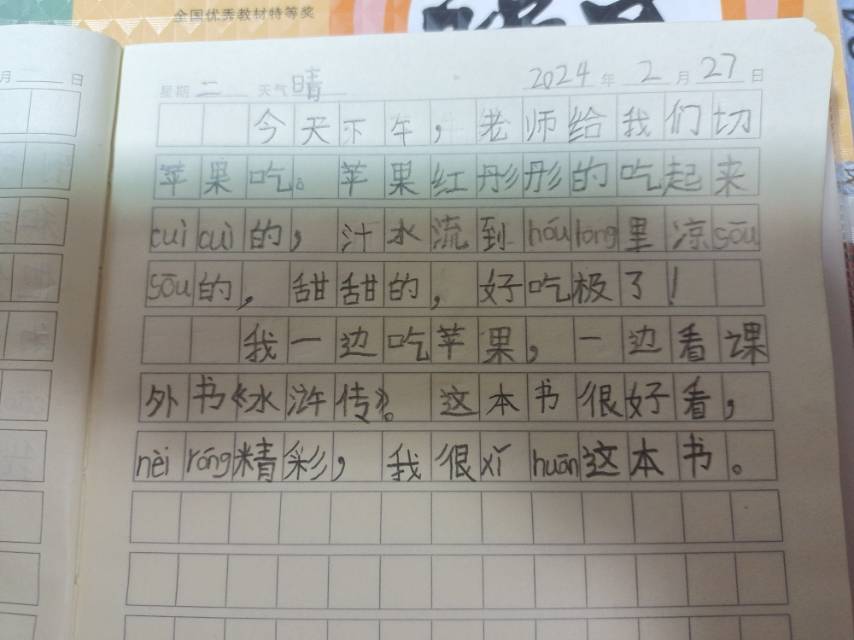 全国优秀教材特等奖
月 日
星期 二 天气 晴 2024 年 2 月 27 日
今天下午，老师给我们切
苹果吃。苹果红彤彤的吃起来
cuì cuì的，汁水流到hóu lóng里凉sōu
sōu的，甜甜的，好吃极了！
我一边吃苹果，一边看课
外书《水浒传》。这本书很好看，
nèi róng精彩，我很xǐ huān这本书。